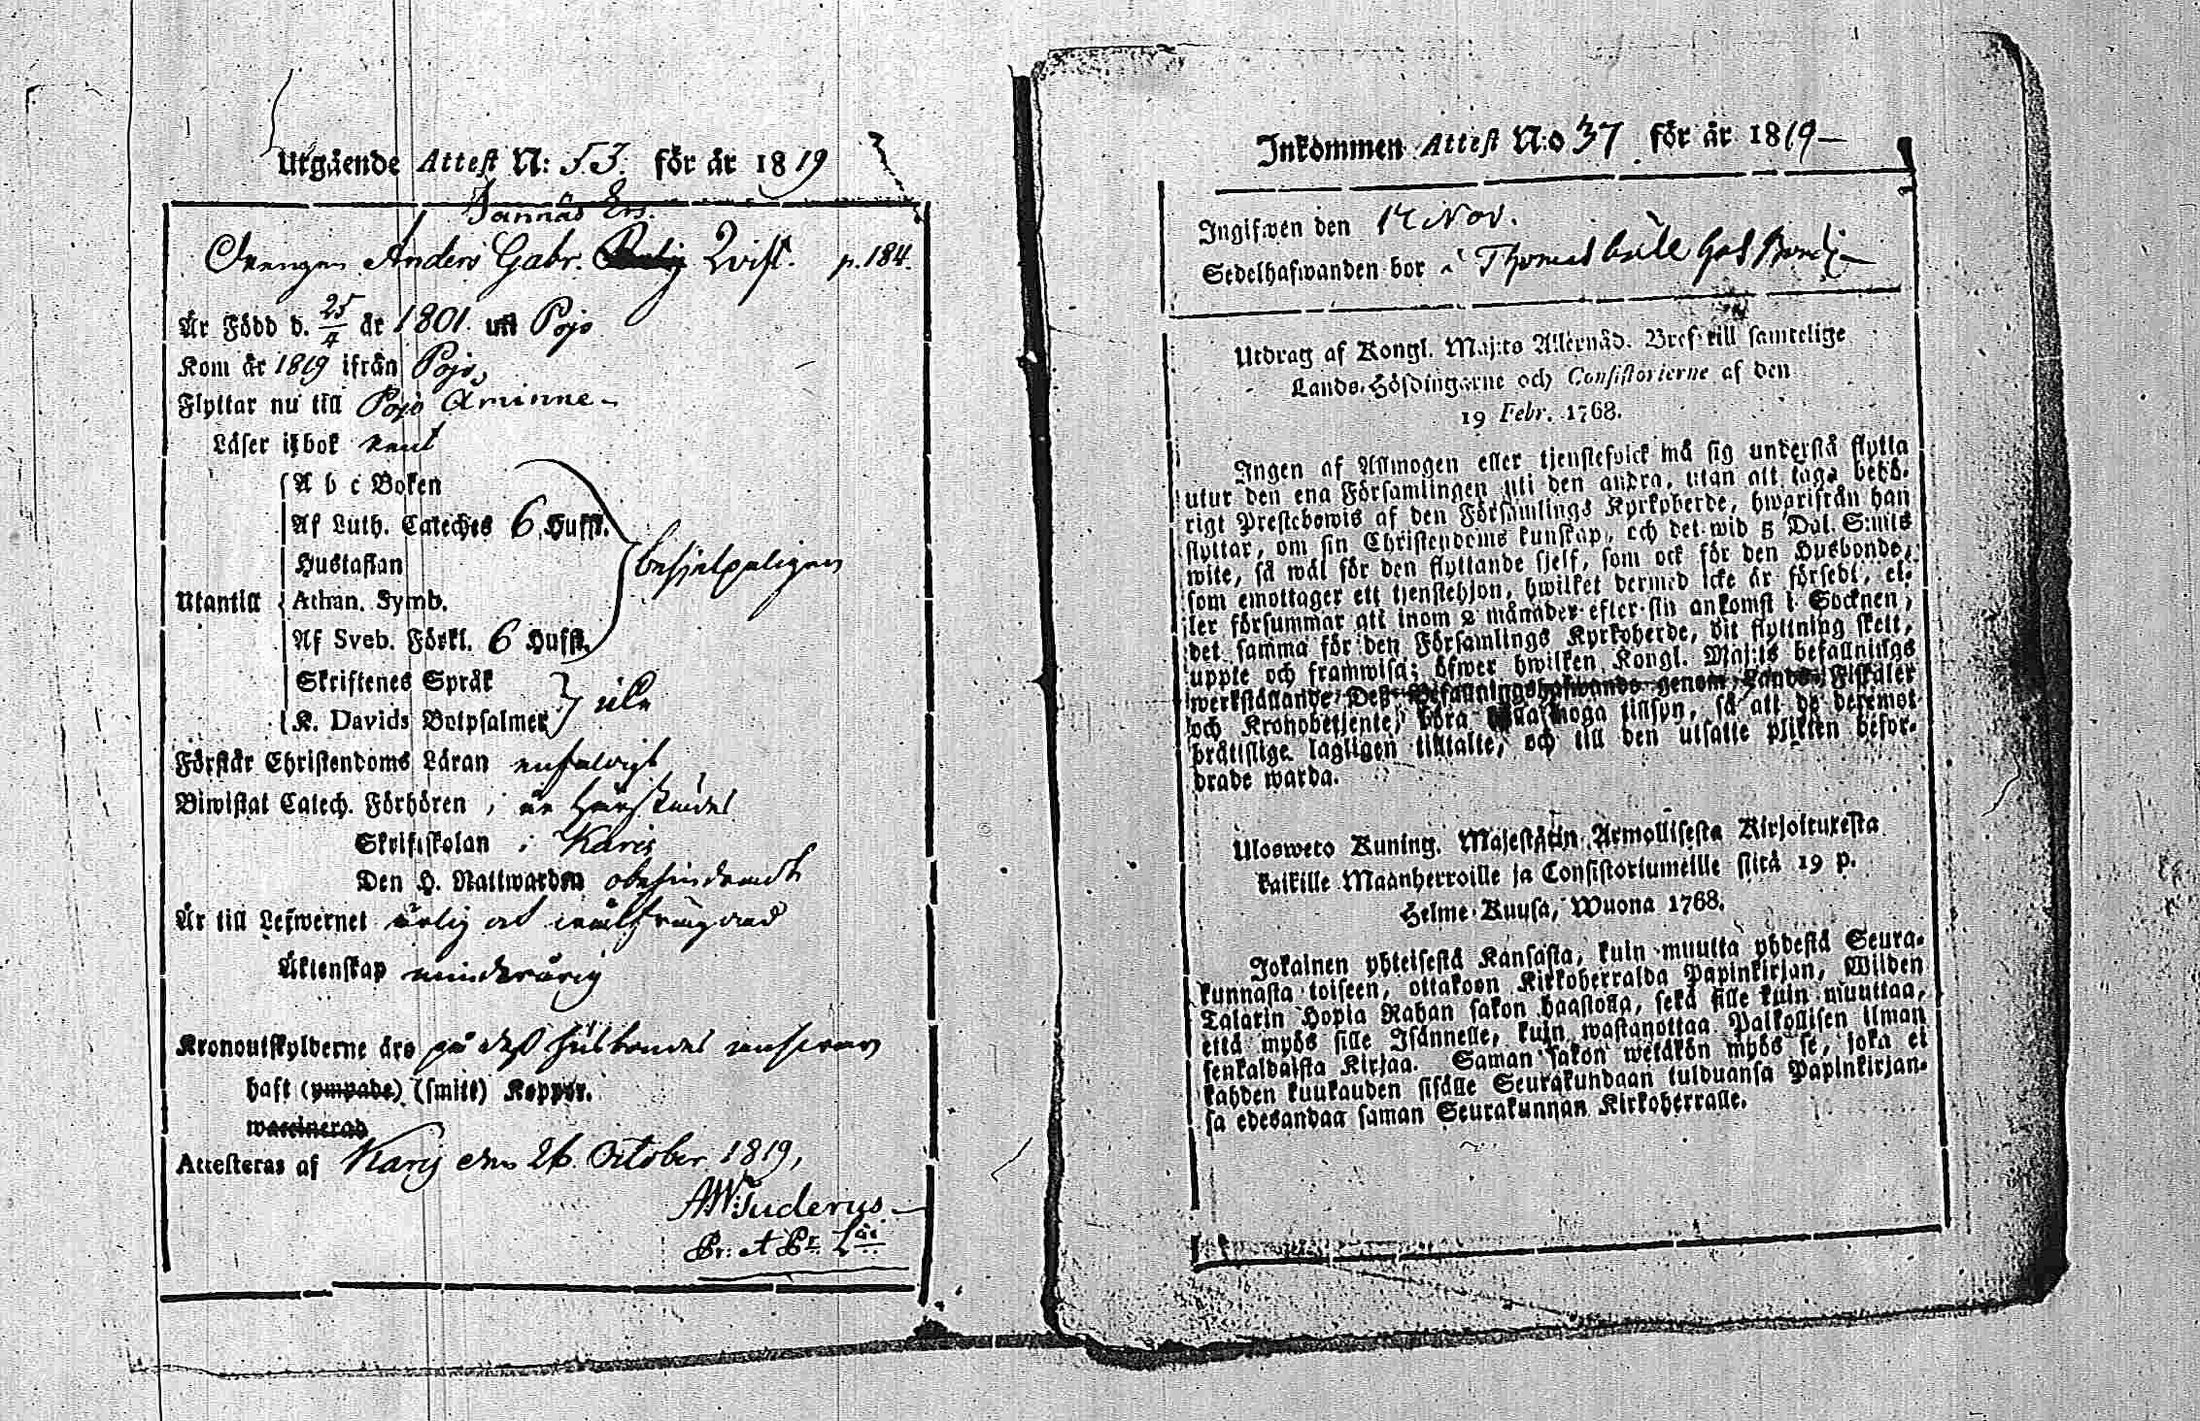 Utgående Attest N: 53. för år 1819
Jannäs Ers.
Drengen Anders Gabr. Qvist. p. 184.
Är Född d. 25/4 år 1801. uti Pojo
Kom år 1819 ifrån Pojo,
Flyttar nu till Pojo Åminne
Läser i bok rent
A b c Boken
Af Luth. Cateches 6 Hufst.
Hustaflan
Utantill Athan. Symb.
Af Sveb. Förkl. 6 Hufst.
behjelpeligen
Skriftenes Språk
K. Davids Botpsalmer
Förstår Christendoms Läran enfaldigt
Biwistat Catech. Förhören,
Skriftskolan i Karis
Den H. Nattwarden obehindradt
Är till Lefwernet ärlig och
Äktenskap minderårig
Kronoutskylderne äro på dess husbondes ansvar
haft (ympade) (smitt) Koppor.
waccinerad
Attesteras af Karis den 26. October 1819,
A W: Tuderus
Pr: et Pr.
Inkommen Attest N:o 37 för år 1819
Ingifwen den 14 Nov.
Sedelhafwanden bor å Thomas
Utdrag af Kongl. Maj:ts Allernåd. Bref till samtelige
Lands-Höfdingarne och Consistorierne af den
19 Febr. 1768.
Ingen af Allmogen eller tjenstefolck må sig understå flytta
utur den ena Församlingen uti den andra, utan att taga behö-
rigt Prestebewis af den Församlings Kyrkoherde, hwarifrån han
flyttar, om sin Christendoms kunskap, och det wid 5 Dal. S:mts
wite, så wäl för den flyttande sjelf, som ock för den Husbonde,
som emottager ett tjenstehjon, hwilket dermed icke är försedt, el-
ler försummar att inom 2 månader efter sin ankomst i Socknen,
det samma för den Församlings Kyrkoherde, dit flyttning skett,
uppte och framwisa; öfwer hwilken Kongl. Maj:ts befallnings
werkställande Dess Befallningshafwande genom Lands-Fiskaler
och Kronobetjente, böra hålla noga tillsyn, så att de deremot
bråtslige lagligen tilltalte, och till den utsatte plikten befor-
drade warda.
Uloswето Kuning. Majestätin Armollisesta Kirjoituxesta
kaikille Maanherroille ja Consistoriumeille siitä 19 p.
Helme-Kuusa, Wuona 1768.
Jokainen yhteisestä Kansasta, kuin muutta yhdestä Seura-
kunnasta toiseen, ottakoon Kirkoherralda Papinkirjan, Wiiden
Talarin Hopia Rahan sakon haastolla, sekä sille kuin muuttaa,
että myös sille Isännelle, kuin wastanottaa Palkollisen ilman
senkaldaista Kirjaa. Saman sakon wetäkön myös se, joka ei
kahden kuukauden sisälle Seurakundaan tulduansa Papinkirjan-
sa edesandaa saman Seurakunnan Kirkoherralle.